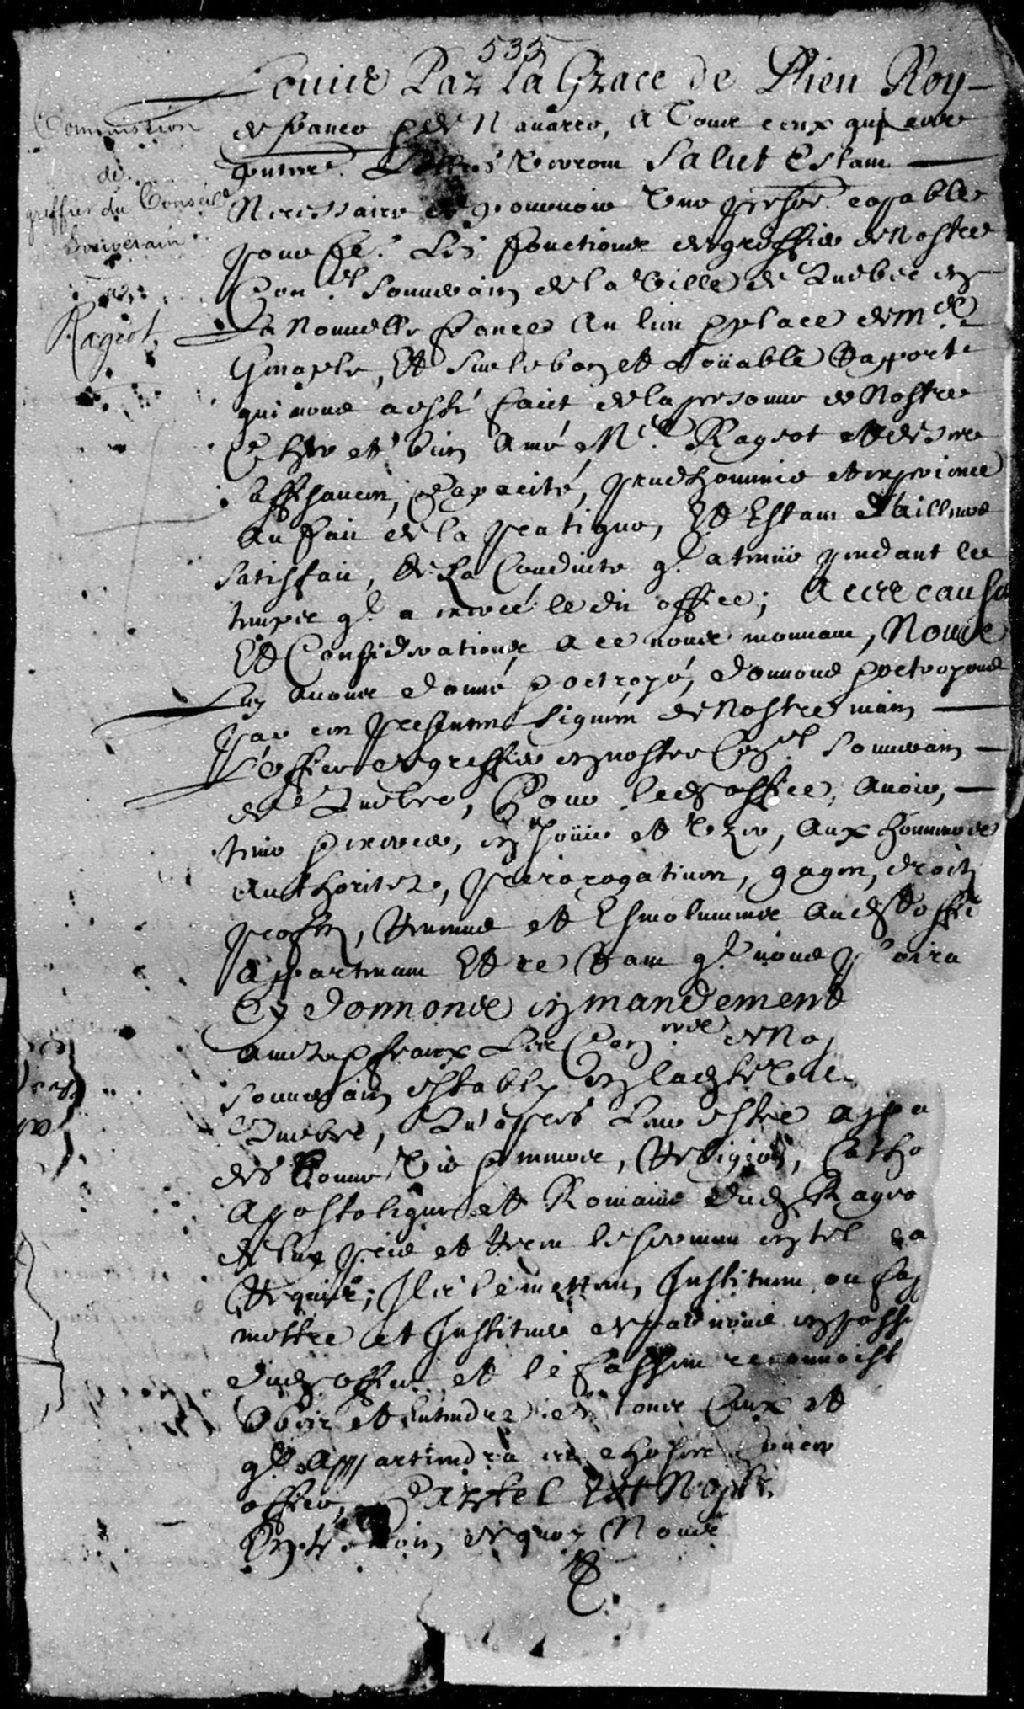 535
Louis Par la Grace de Dieu Roy
de france et de Navarre, A Tous ceux qui ces
Lettres verront Salut Estant
Commission
de
greffier du Conseil
Souverain
Necessaire de pourvoir une persone capable
pour les fonctions de greffier de Nostre
Con.el Souverain de la Ville de Quebec en
Rageot
La Nouvelle france Au lieu et place de
Et sur le bon et Loüable Rapport
qui nous a esté fait de la personne de Nostre
Cher et bien Amé M.e Rageot et de ses
suffisance, Capacité, preudhommie et experience
Au fait de la pratique, Et Estant d'ailleurs
satisfait, de La Conduite q.l a tenuë pendant le
temps q.l a exercé le dit office; A Ces causes
Et Considerations A ce nous mouvans, Nous
Luy Avons donné et octroyé, donnons et octroyons
par ces presentes signées de Nostre main
L'office de greffier en nostre Con.el Souverain
de Quebec, Pour led. office, Avoir,
tenir et exercer, en Joüir et Vzer, Aux honneurs
Authoritez, prerogatives, gages, droits
profits, revenus et Esmolumens Aud. office
Appartenans Et ce tant q.l nous plaira
Sy donnons en mandement
Amez et feaux Les Con.ers de No
Souverain Estably en lad. Ville
Quebec, Qu'apres Leur estre appa
des bonne Vie et moeurs, Religion, Catho
Apostolique et Romaine dud. Rageo
et de luy pris et receu le serment en tel ca
Requis; Ils le mettent, Instituent ou fa
mettre et Instituer de par nous en posse
dud. office et le fassent reconnoist
Obeir et Entendre de tous Ceux et
q.l Appartiendra es choses conce
office, Car tel Est Nostre
En tesmoin de quoy Nous